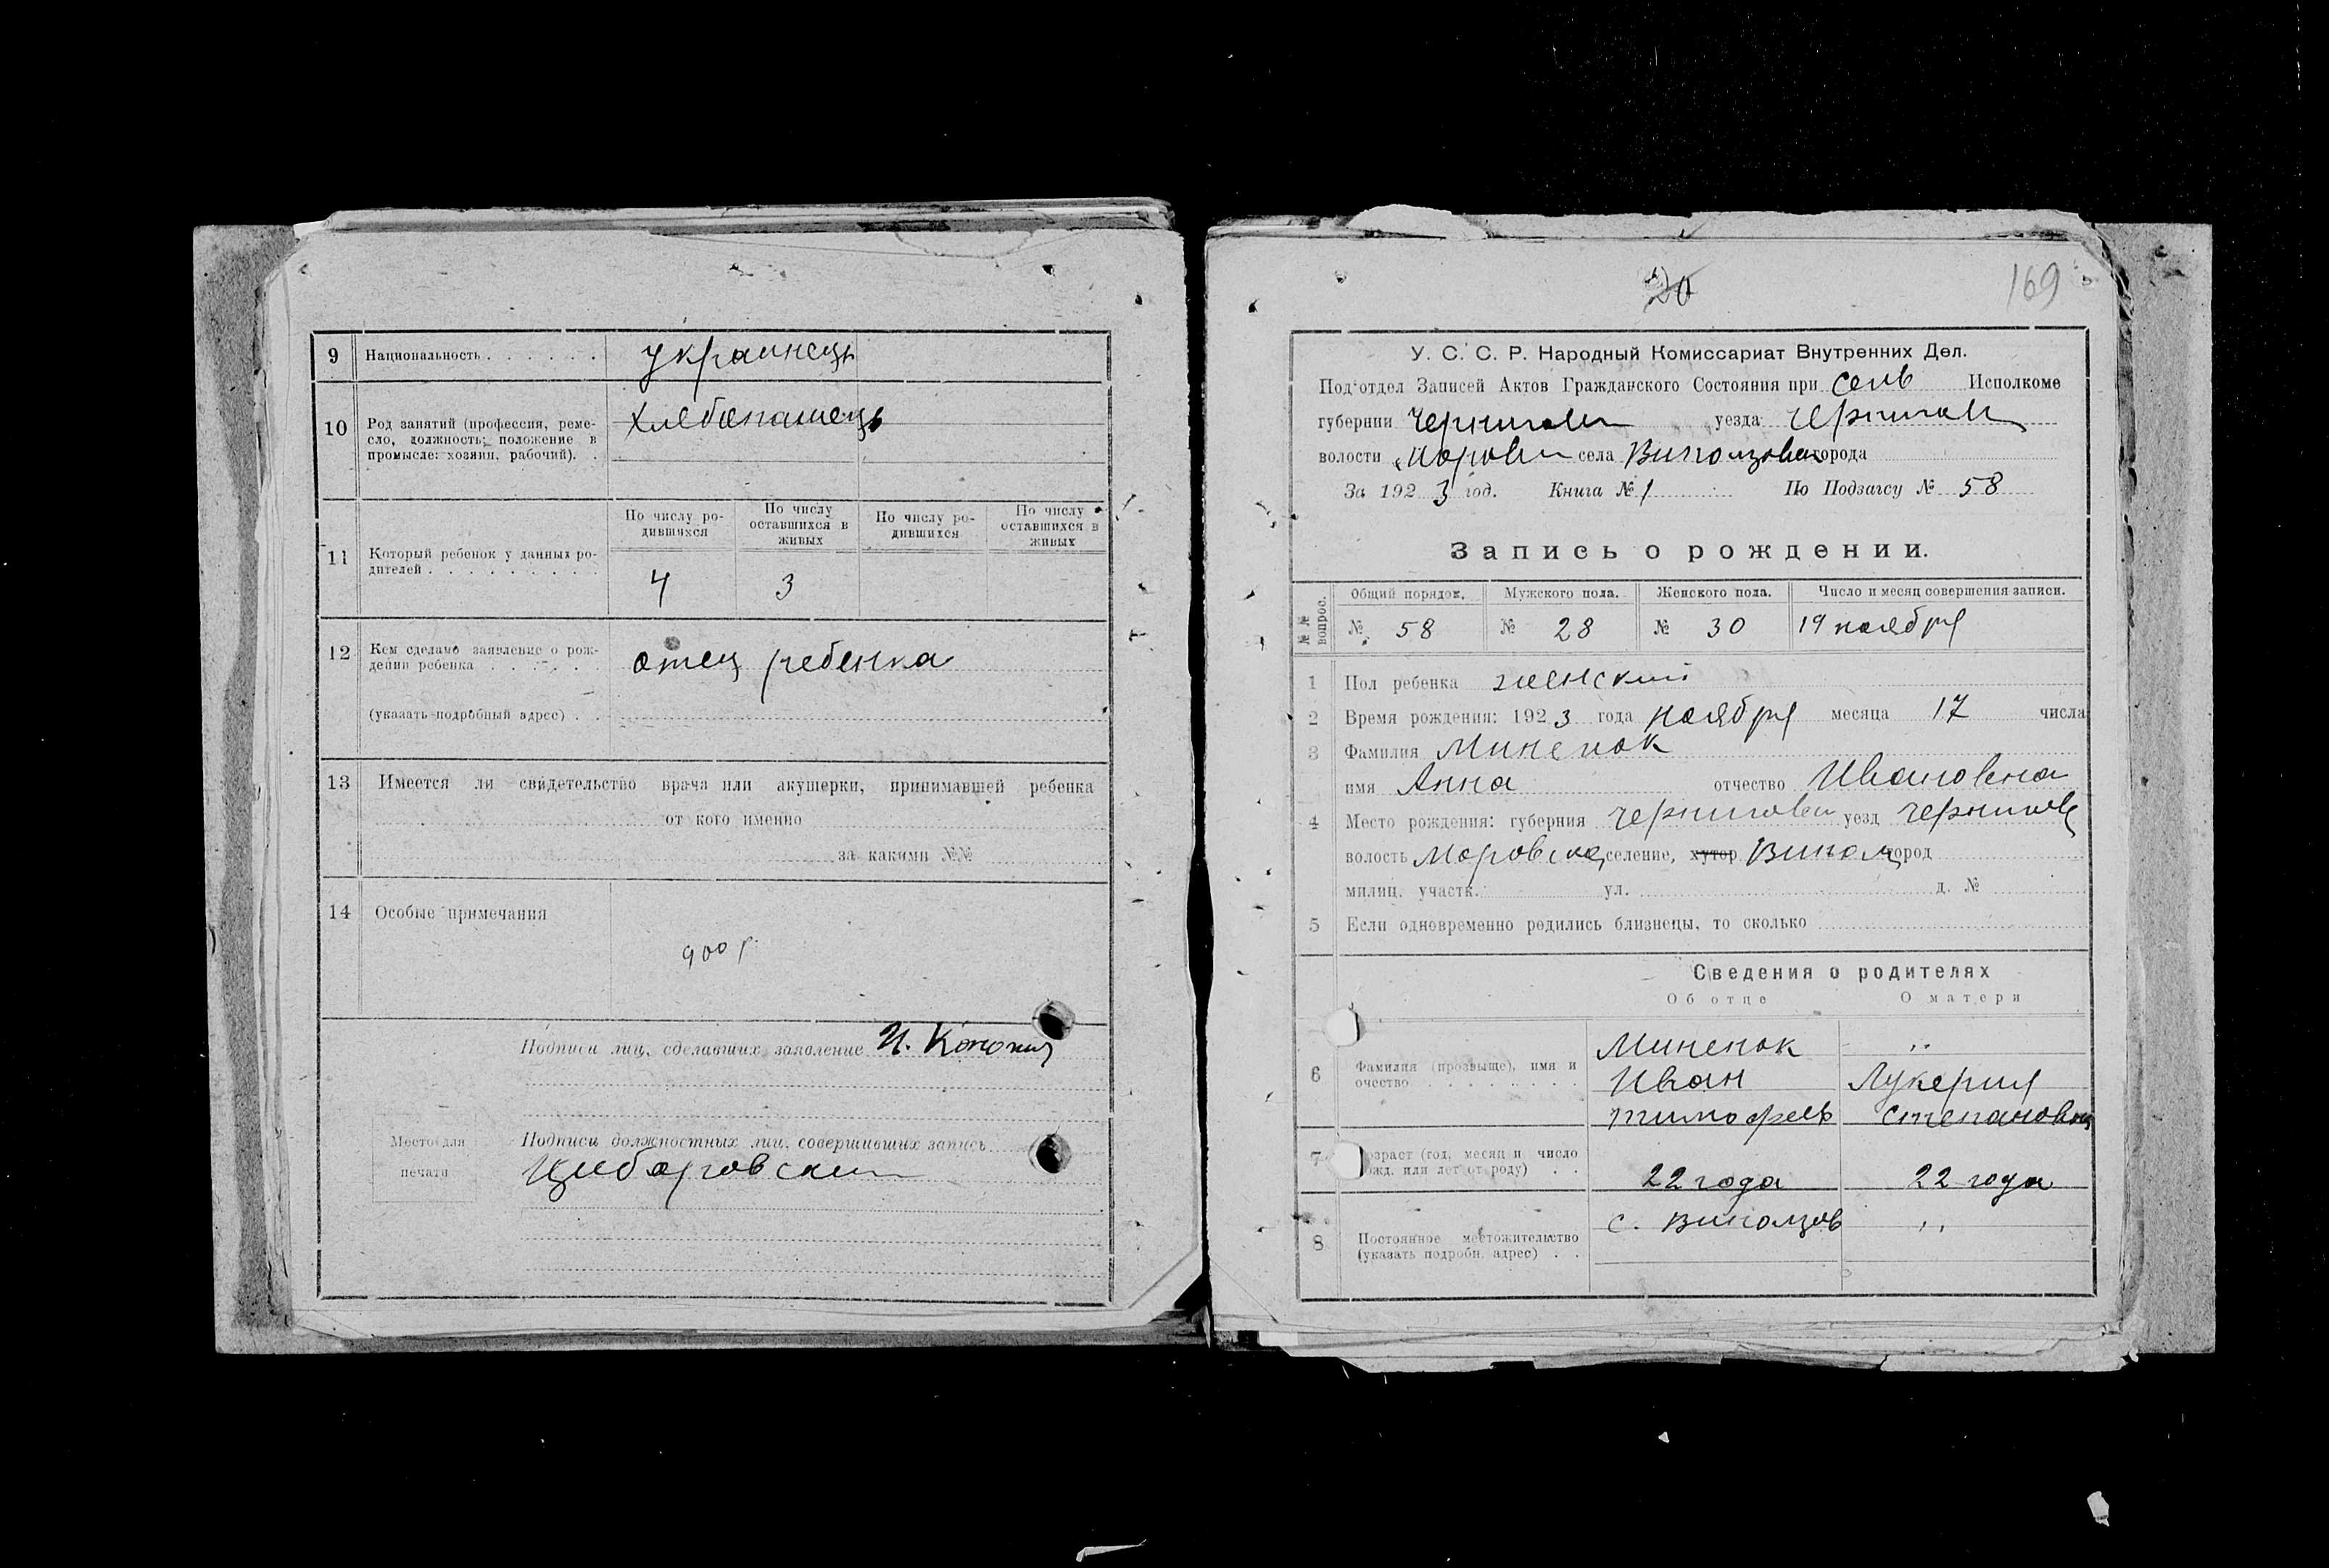 9 Национальность . . . . . . украинець
10 Род занятий (профессия, реме-
сло, должность; положение в
промысле: хозяин, рабочий). .
Хлебопашець
11 Который ребенок у данных ро-
дителей . . . . . . . . .
По числу ро-
дившихся
По числу
оставшихся в
живых
По числу ро-
дившихся
По числу
оставшихся в
живых
4 3
12 Кем сделано заявление о рож-
дении ребенка . . . . . .
отец ребенка
(указать подробный адрес) . .
13 Имеется ли свидетельство врача или акушерки, принимавшей ребенка
от кого именно
за какими №№
14 Особые примечания
900 р
Подписи лиц, сделавших заявление И.
Место для
печати
Подписи должностных лиц, совершивших запись
20
169
У. С. С. Р. Народный Комиссариат Внутренних Дел.
Под'отдел Записей Актов Гражданского Состояния при Сель Исполкоме
губернии Чернигов уезда Чернигов
волости Моровск села Виползовск города
За 1923 год. Книга № 1 По Подзагсу № 58
Запись о рождении.
№№ вопрос.
Общий порядок. Мужского пола. Женского пола. Число и месяц совершения записи.
№ 58 № 28 № 30 19 ноября
1 Пол ребенка женский
2 Время рождения: 1923 года ноября месяца 17 числа
3 Фамилия Миненок
имя Анна отчество Ивановна
4 Место рождения: губерния Чернигов уезд Чернигов
волость Моровска селение, хутор Виполз город
милиц. участк. ул. д. №
5 Если одновременно родились близнецы, то сколько
Сведения о родителях
Об отце О матери
6 Фамилия (прозвище), имя и
очество . . . . . . . .
Миненок "
Иван Лукерия
Тимофеев Степановна
7 Возраст (год, месяц и число
рожд. или лет от роду) . .
22 года 22 года
8 Постоянное местожительство
(указать подробн. адрес) . .
с. Виползов "